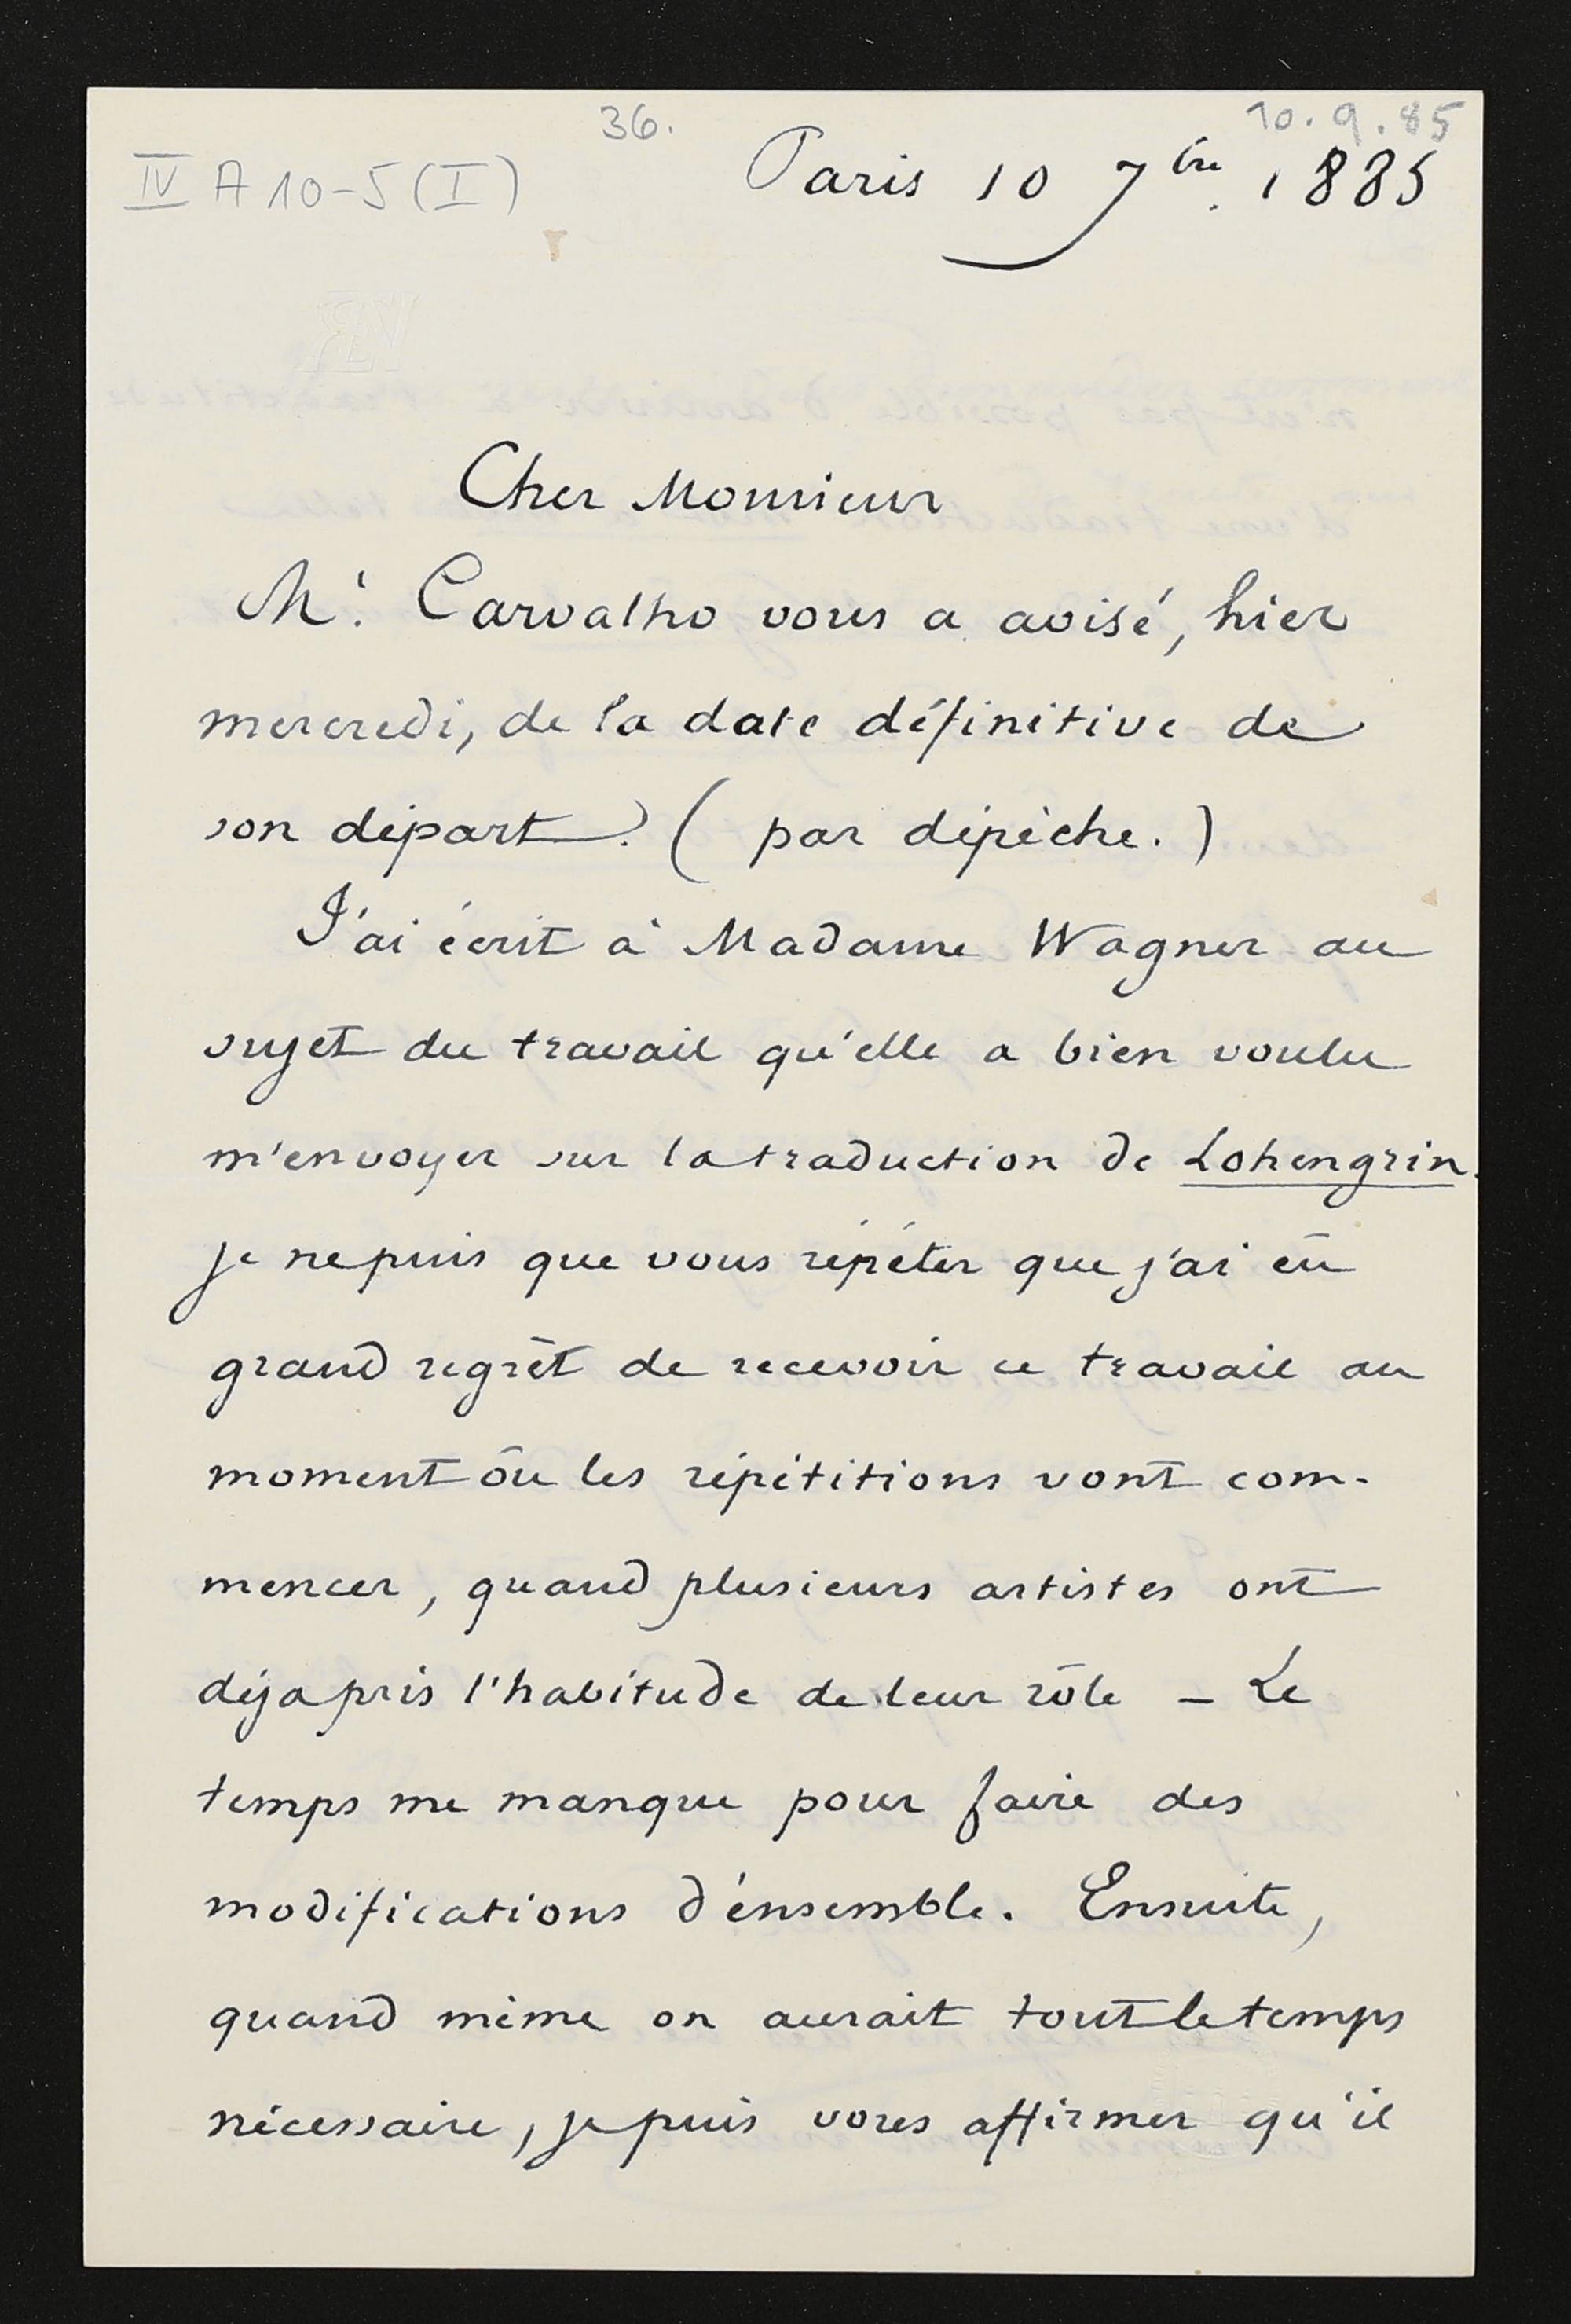 36.
10.9.85
IV A 10-5 (I)
Paris 10 7bre. 1885
Cher Monsieur
Mr. Carvalho vous a avisé, hier
mercredi, de la date définitive de
son départ. (par dépèche.)
J'ai écrit à Madame Wagner au
sujet du travail qu'elle a bien voulu
m'envoyer sur la traduction de Lohengrin.
je ne puis que vous répéter que j'ai eû
grand regrèt de recevoir ce travail au
moment où les répétitions vont com-
mencer, quand plusieurs artistes ont
déja pris l'habitude de leur rôle – Le
temps me manque pour faire des
modifications d'énsemble. Ensuite,
quand même on aurait tout le temps
nécessaire, je puis vous affirmer qu'il